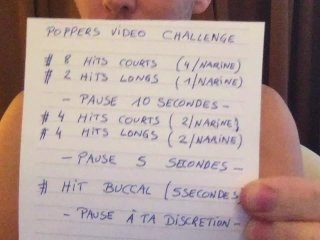 POPPERS VIDEO CHALLENGE
# 8 HITS COURTS (4/NARINE)
# 2 HITS LONGS (1/NARINE)
- PAUSE 10 SECONDES -
# 4 HITS COURTS (2/NARINE)
# 4 HITS LONGS (2/NARINE)
- PAUSE 5 SECONDES -
# HIT BUCCAL (5SECONDES
- PAUSE À TA DISCRETION -